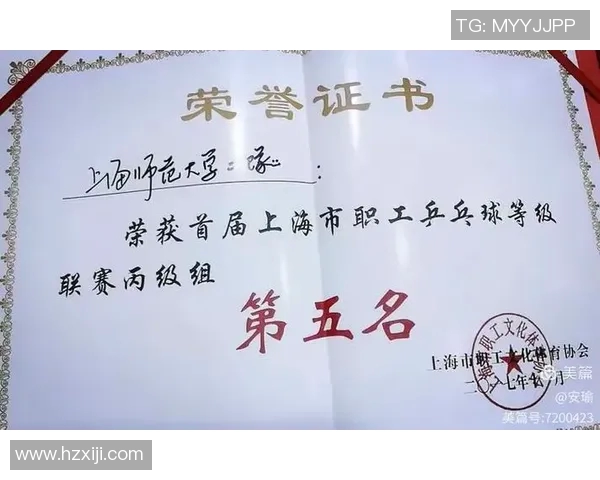 TG: MYYJJPP
荣誉证书
上海师范大学二队:
荣获首届上海市职工乒乓球等级
联赛丙级组
第五名
上海市职工文化体育协会
二〇一七年十一月
美篇
@安瑜
美篇号:7200423
www.hzxiji.com